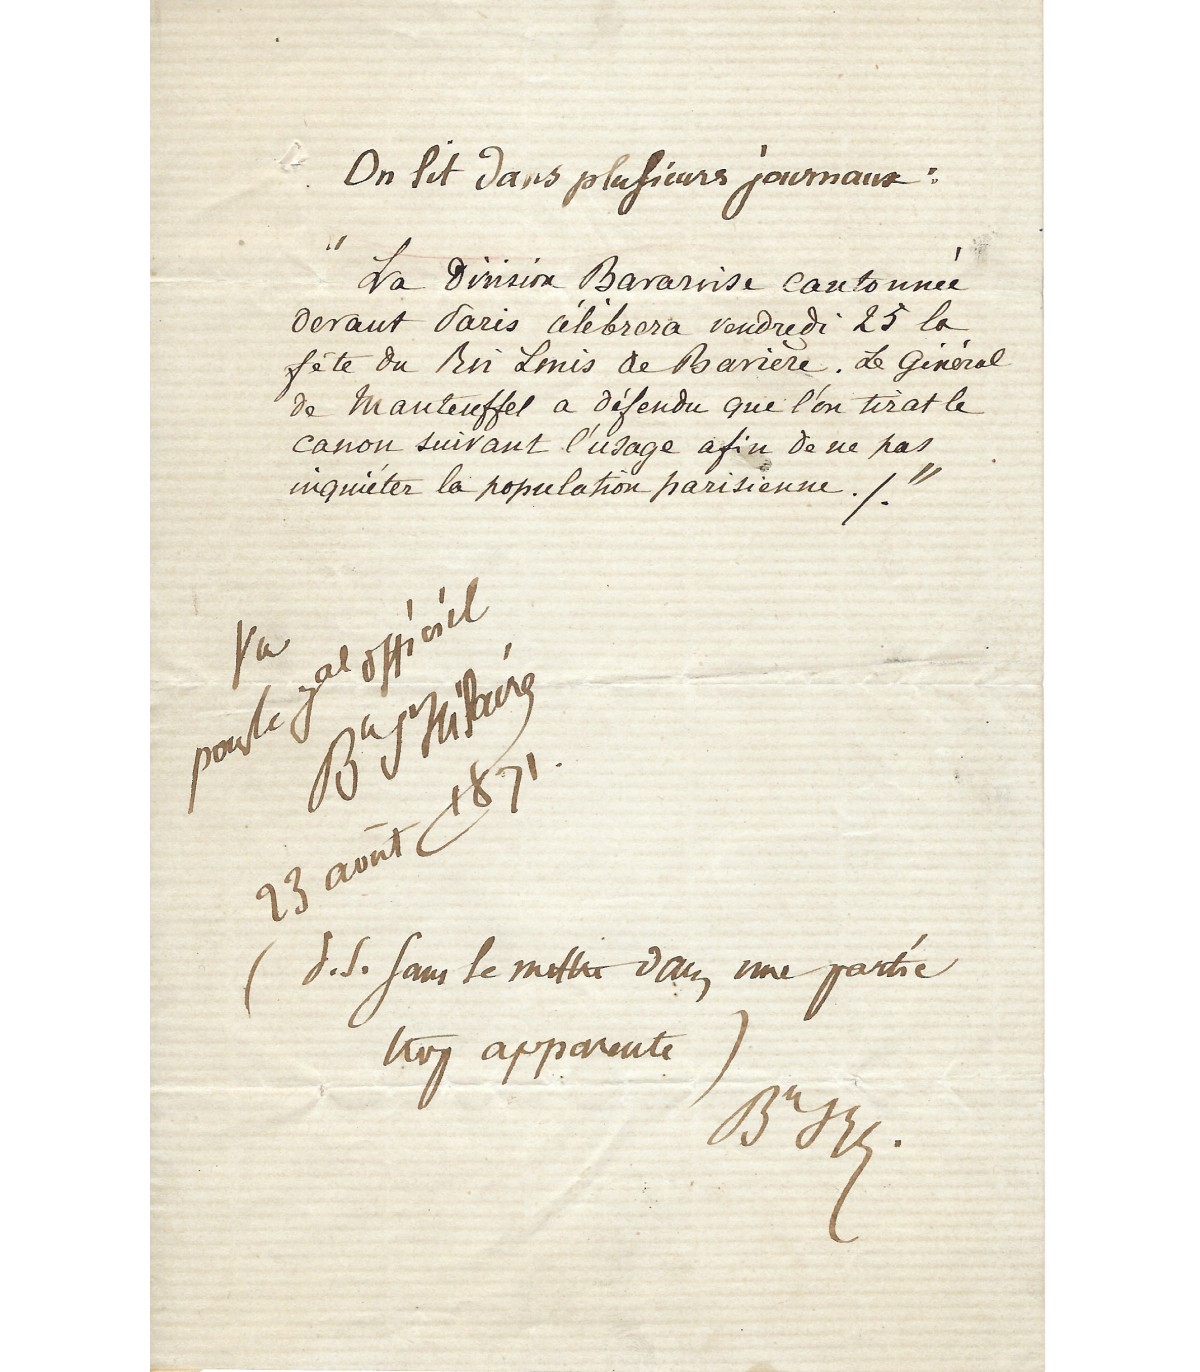 On lit dans plusieurs journaux :
" La Division Bavaroise cantonnée
devant Paris célèbrera vendredi 25 la
fête du Roi Louis de Bavière. Le Général
de Manteuffel a défendu que l'on tirat le
canon suivant l'usage afin de ne pas
inquiéter la population parisienne ./. "
Vu
pour le Jal officiel
Bmy St Hilaire
23 août 1871.
( d. S. Sans le mettre dans une partie
trop apparente )